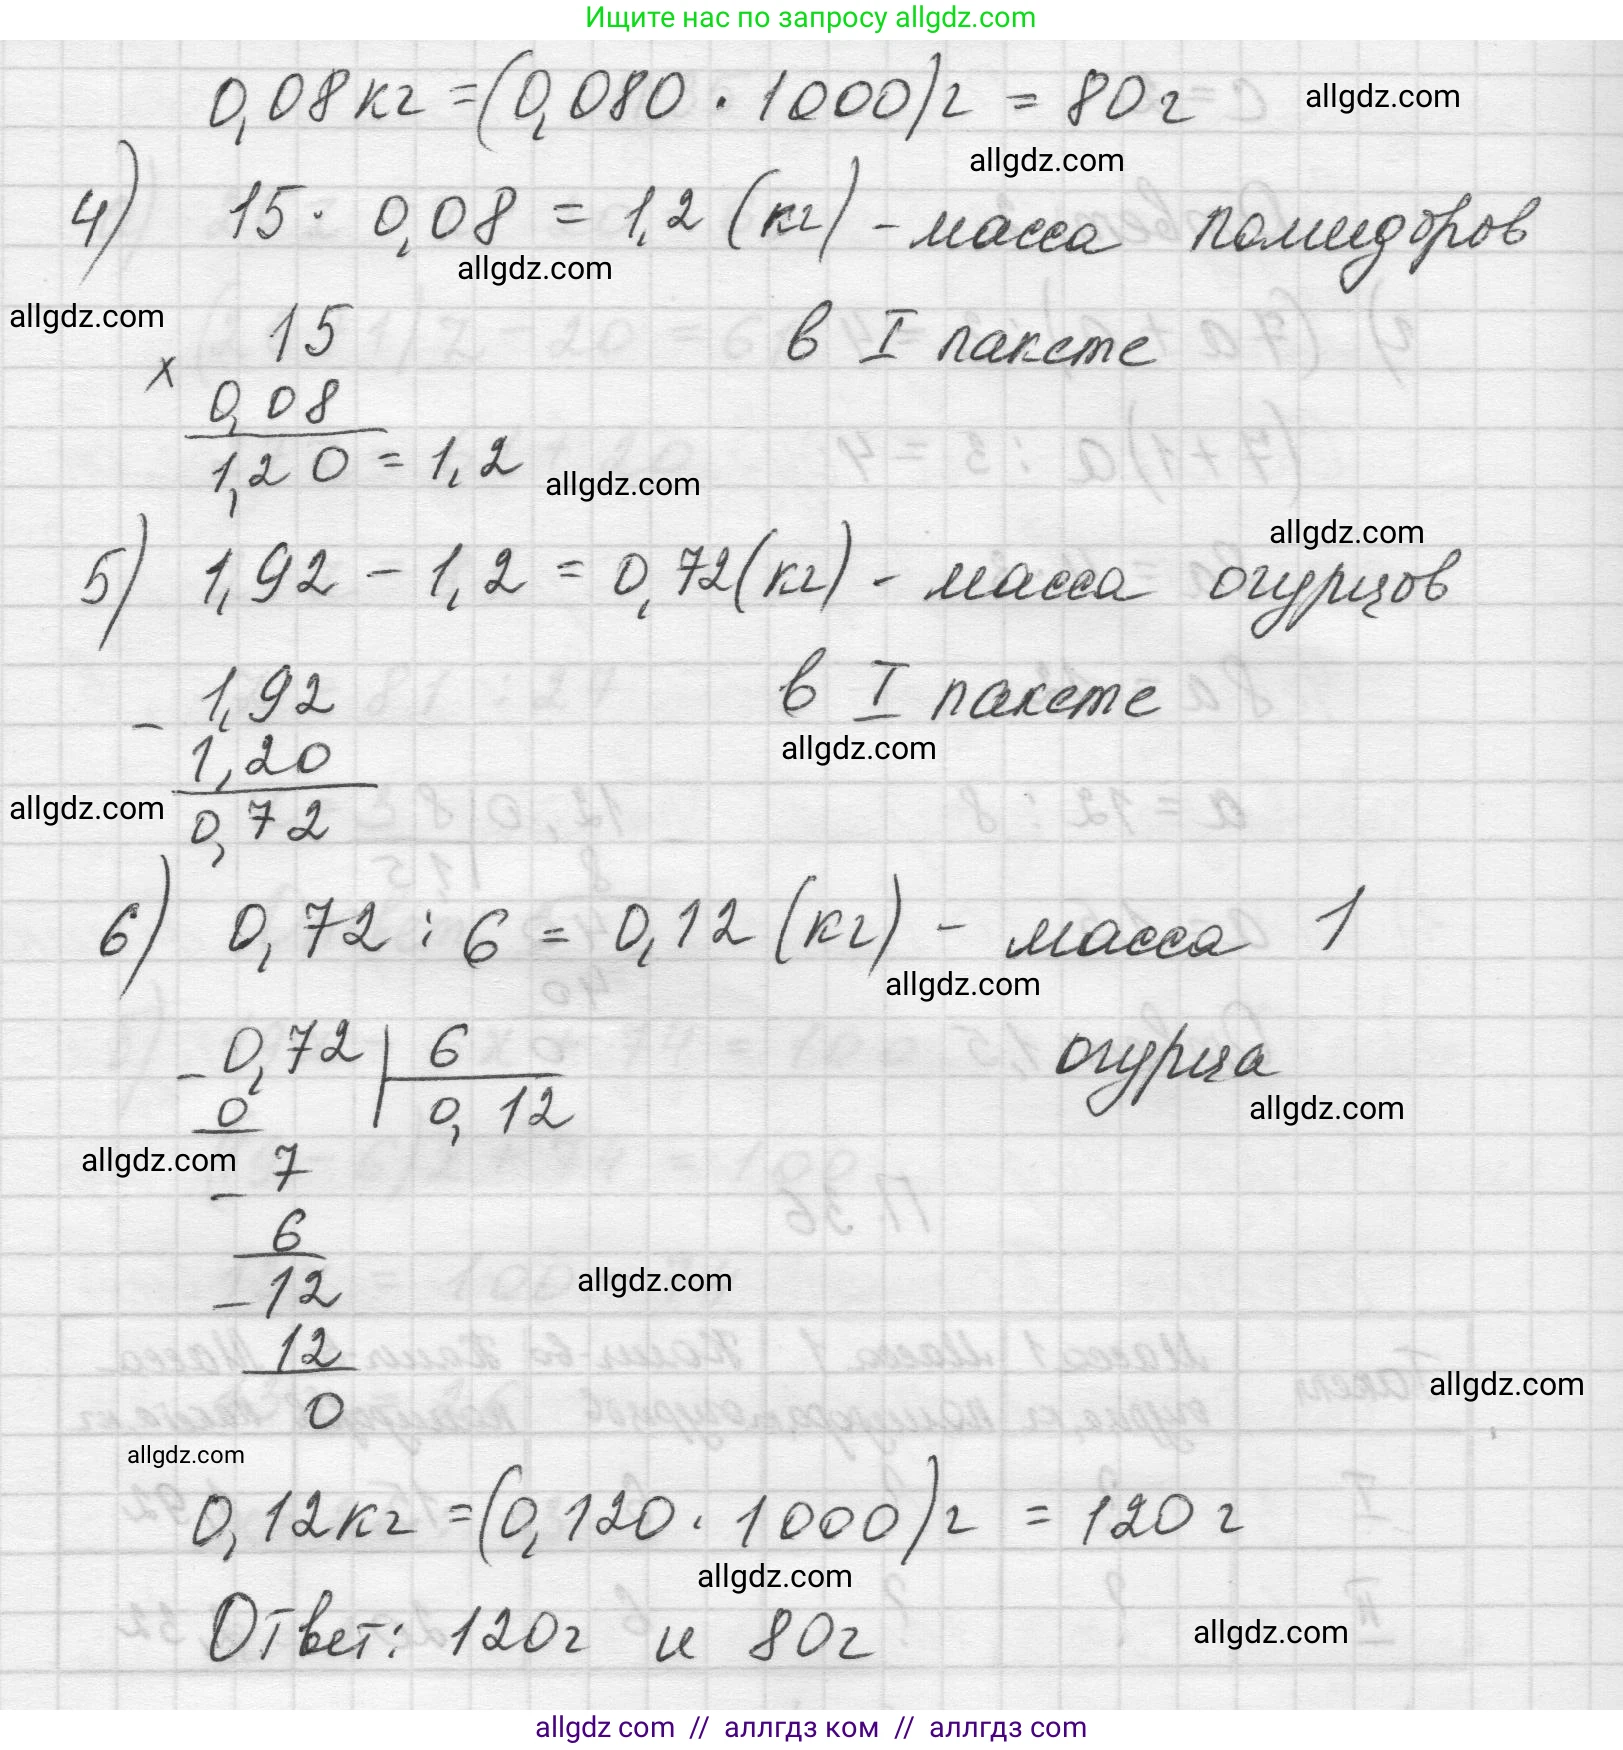 Ищите нас по запросу allgdz.com
0,08 кг = (0,080 · 1000) г = 80 г
allgdz.com
allgdz.com
4) 15 · 0,08 = 1,2 (кг) - масса помидоров
allgdz.com
allgdz.com
в I пакете
15
×
0,08
1,20 = 1,2
allgdz.com
allgdz.com
5) 1,92 - 1,2 = 0,72 (кг) - масса огурцов
в I пакете
- 1,92
allgdz.com
1,20
allgdz.com
0,72
6) 0,72 : 6 = 0,12 (кг) - масса 1
allgdz.com
огурца
- 0,72 | 6
0 0,12
allgdz.com
allgdz.com
- 7
6
allgdz.com
- 12
12
allgdz.com
0
allgdz.com
0,12 кг = (0,120 · 1000) г = 120 г
allgdz.com
Ответ: 120 г и 80 г
allgdz.com
allgdz com // аллгдз ком // аллгдз com